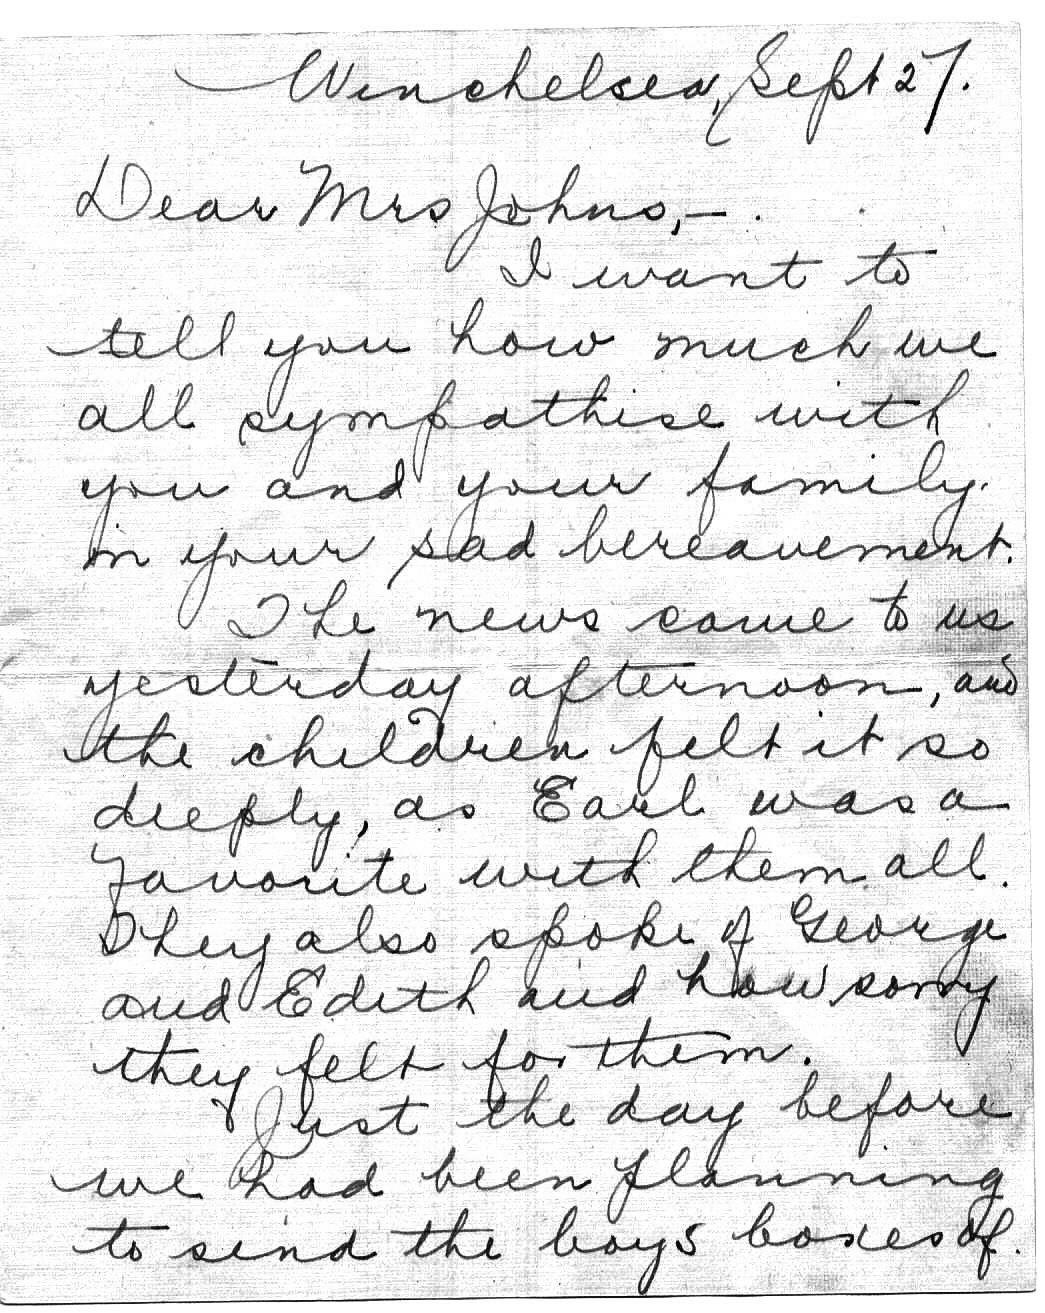 Winchelsea, Sept 27.
Dear Mrs Johns,—.
I want to
tell you how much we
all sympathise with
you and your family.
in your sad bereavement.
The news came to us
yesterday afternoon, and
the children felt it so
deeply, as Earl was a
favorite with them all.
They also spoke of George
and Edith and how sorry
they felt for them.
Just the day before
we had been planning
to send the boys boxes of.